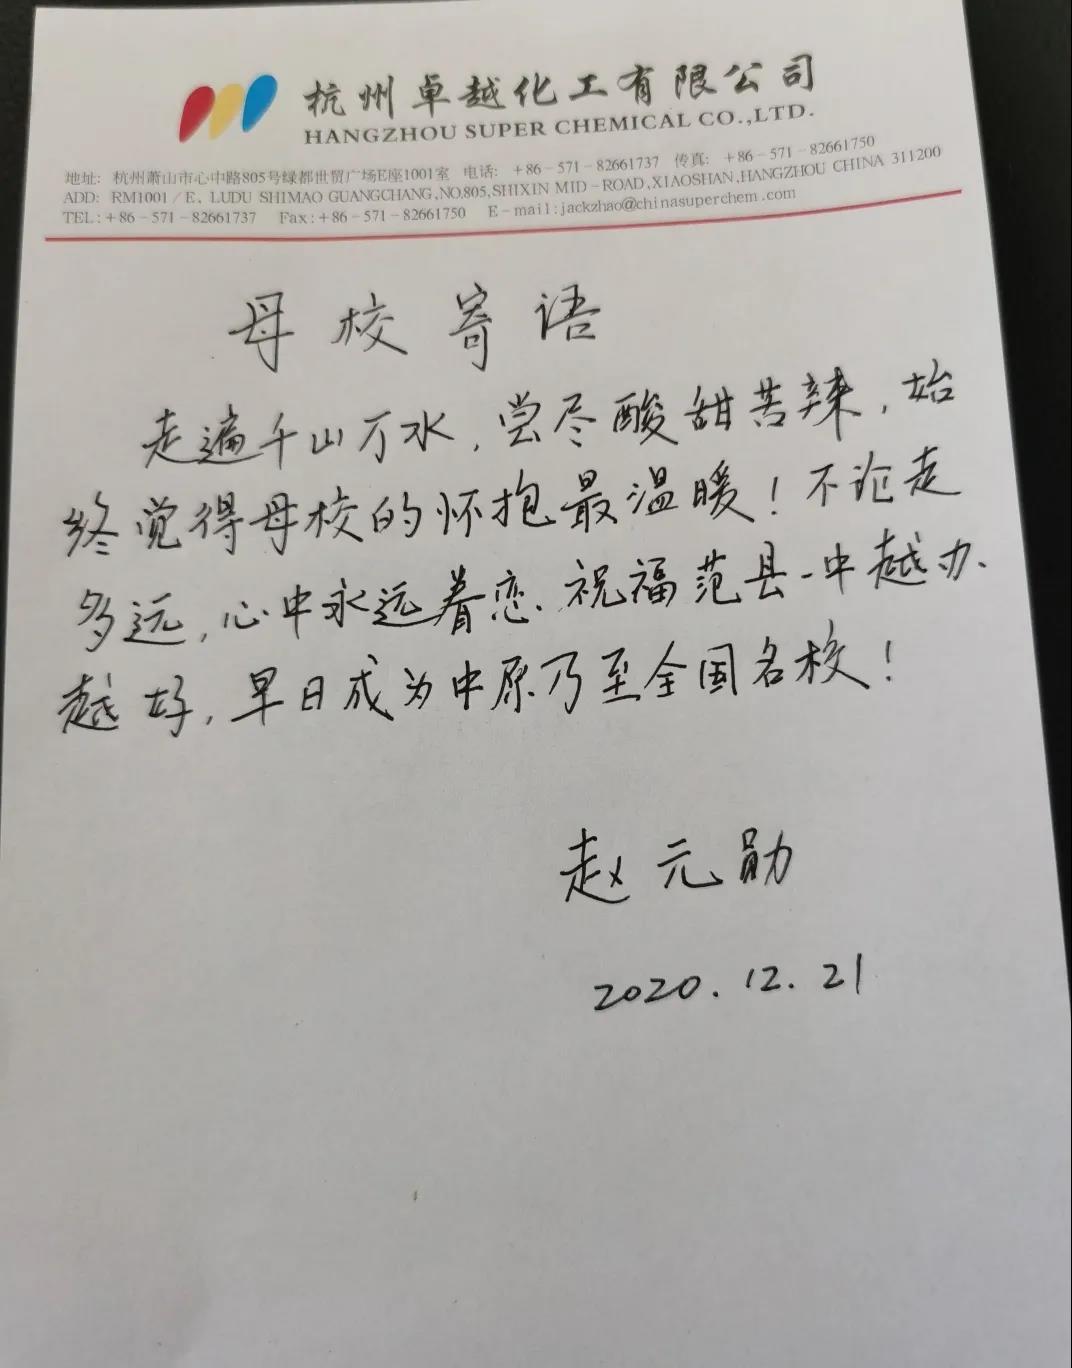 杭州卓越化工有限公司
HANGZHOU SUPER CHEMICAL CO.,LTD.
地址: 杭州萧山市心中路805号绿都世贸广场E座1001室 电话: +86-571-82661737 传真: +86-571-82661750
ADD: RM1001/E, LUDU SHIMAO GUANGCHANG,NO.805,SHIXIN MID-ROAD,XIAOSHAN,HANGZHOU CHINA 311200
TEL:+86-571-82661737 Fax:+86-571-82661750 E-mail:jackzhao@chinasuperchem.com
母校寄语
走遍千山万水,尝尽酸甜苦辣,始
终觉得母校的怀抱最温暖!不论走
多远,心中永远眷恋、祝福范县一中越办
越好,早日成为中原乃至全国名校!
赵元勋
2020.12.21